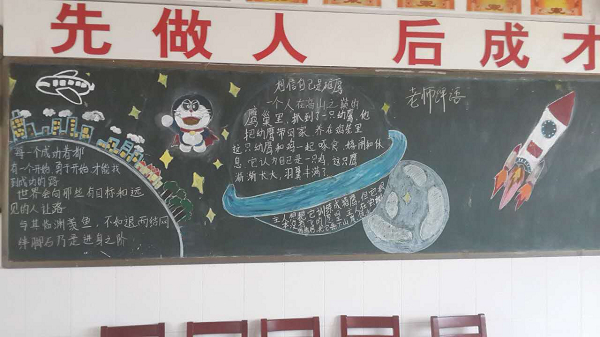 先做人 后成才
每一个成功者都
有一个开始,勇于开始,才能找
到成功的路
世界会向那些有目标和远
见的人让路
与其临渊羡鱼,不如退而结网
绊脚石乃是进身之阶
相信自己是雄鹰
一个人在高山之巅的
鹰巢里,抓到了一只幼鹰,他
把幼鹰带回家,养在鸡笼里
这只幼鹰和鸡一起啄食、嬉闹和休
息,它认为自己是一只鸡,这只鹰
渐渐长大,羽翼丰满了
主人想把它训练成猎鹰
老师评语